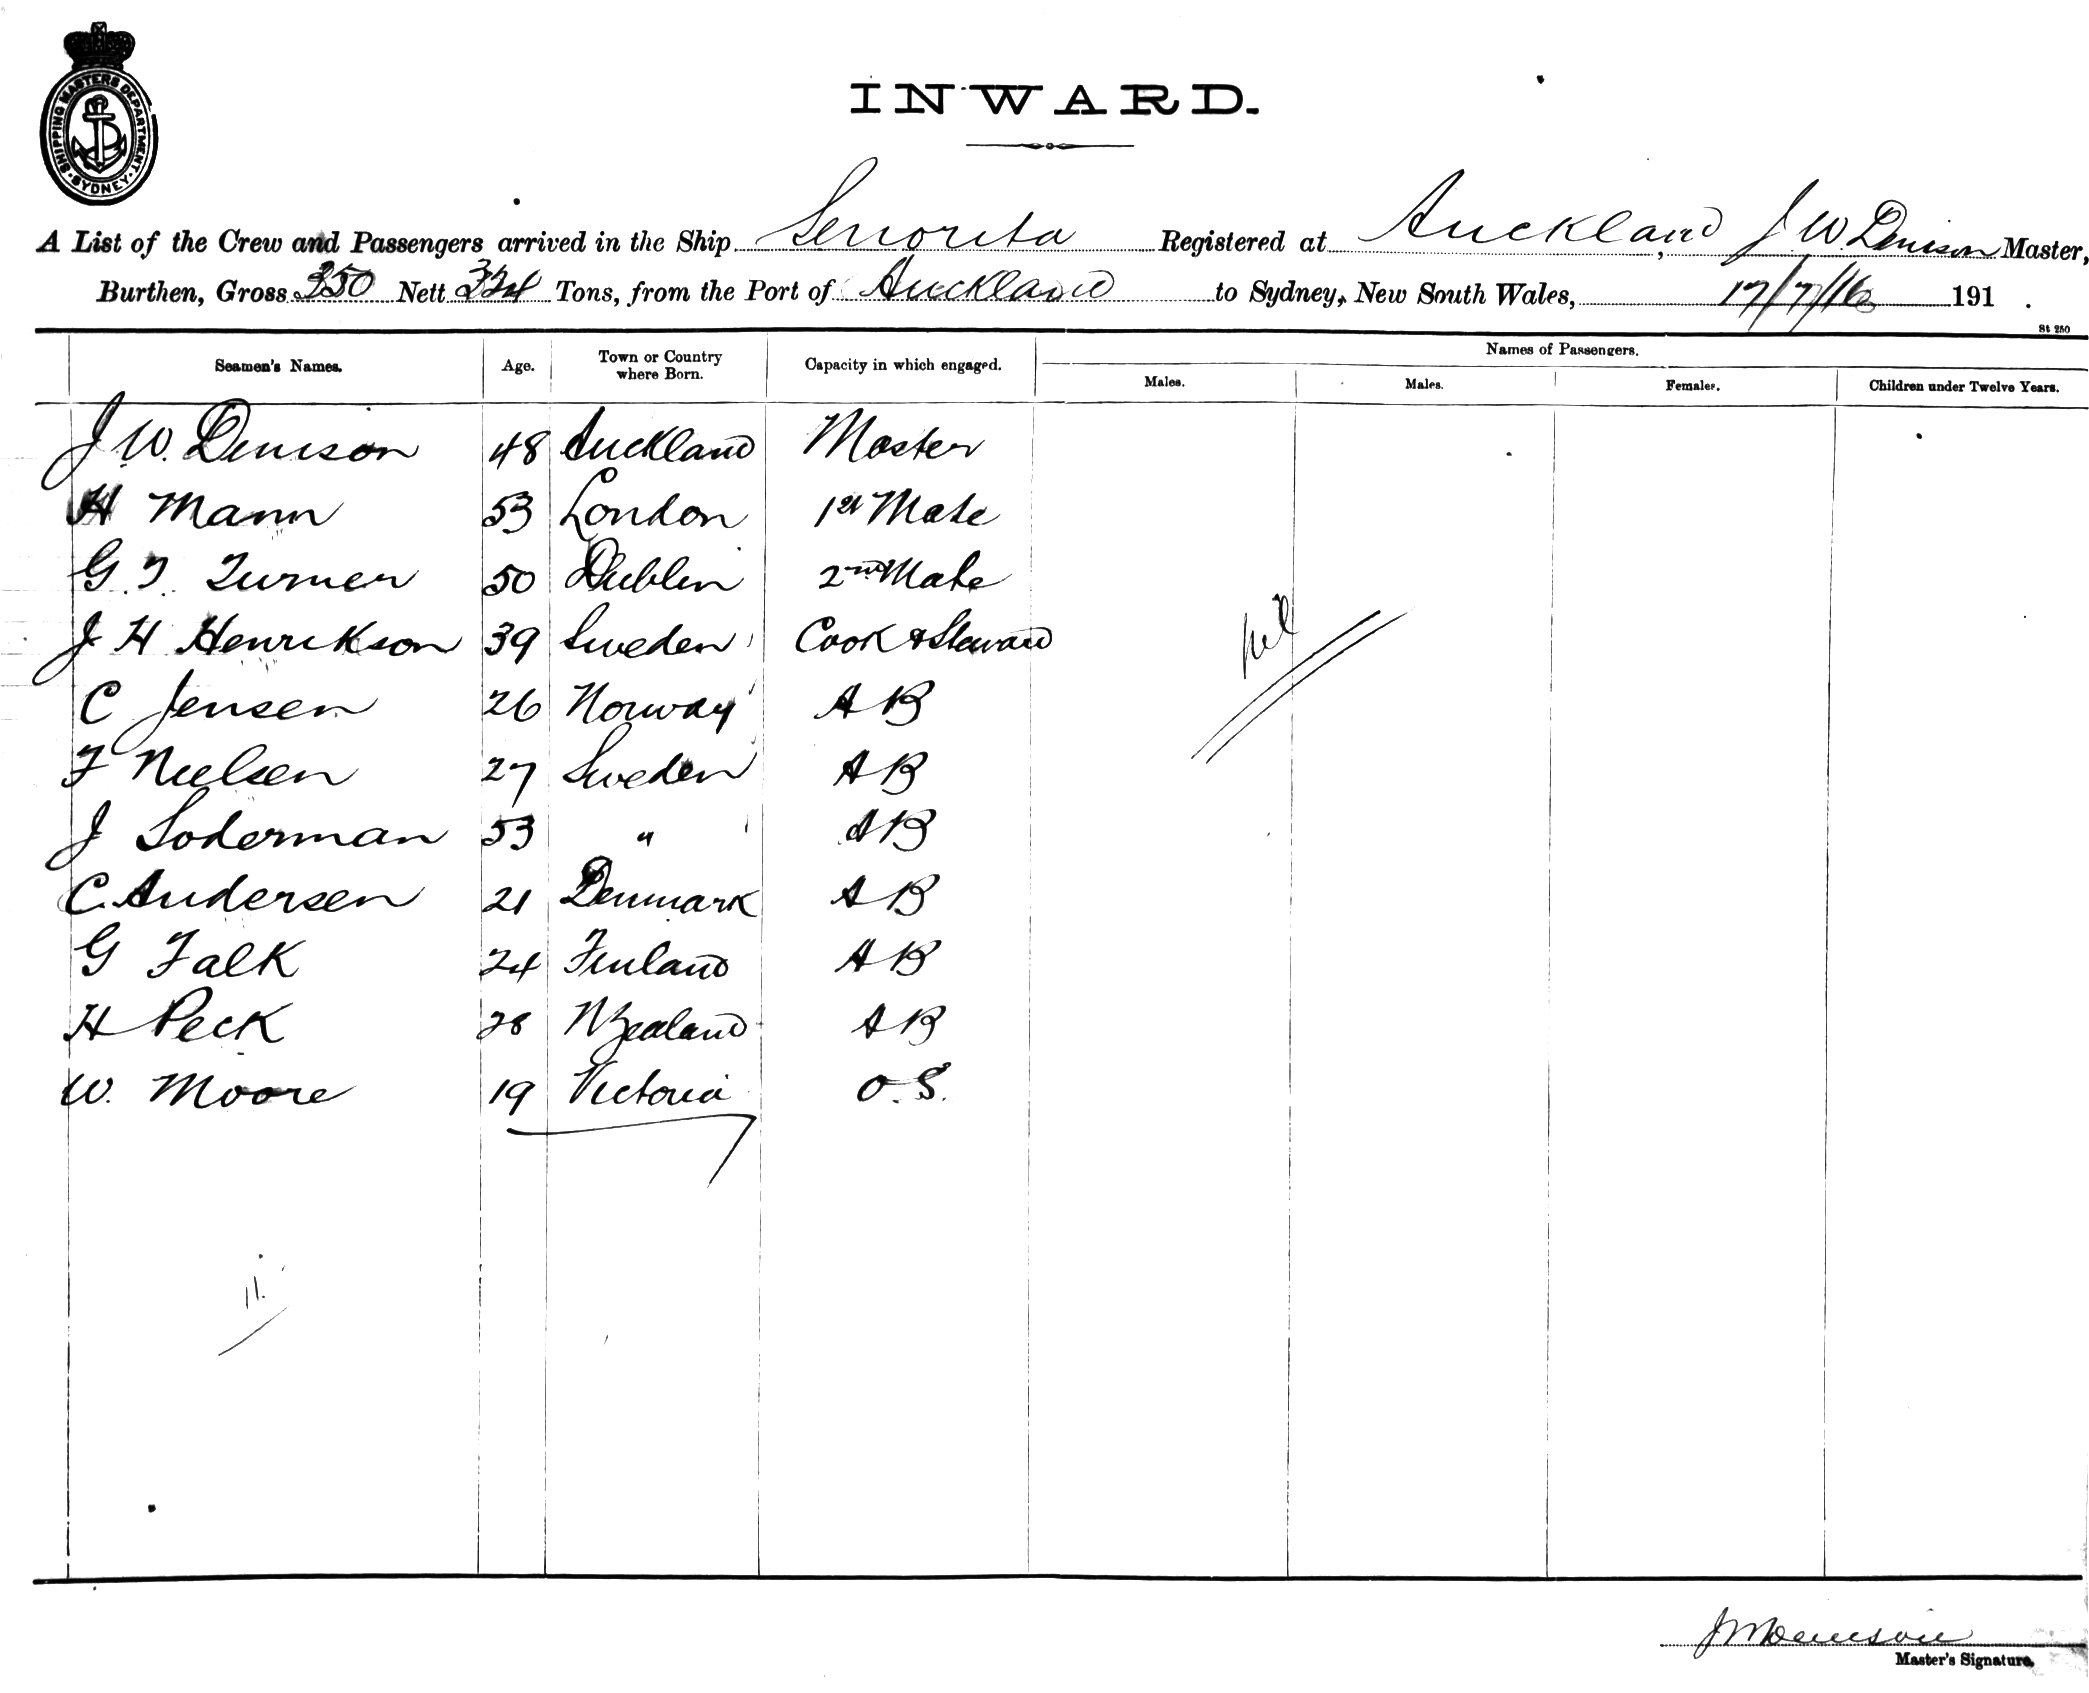 SHIPPING MASTERS DEPARTMENT. SYDNEY.
INWARD.
A List of the Crew and Passengers arrived in the Ship Senorita Registered at Auckland, J W. Denison Master,
Burthen, Gross 350 Nett 324 Tons, from the Port of Auckland to Sydney, New South Wales, 17/7/16 191 .
St 250
Seamen's Names. Age. Town or Country where Born. Capacity in which engaged. Names of Passengers.
Males. Males. Females. Children under Twelve Years.
J W. Denison 48 Auckland Master
H Mann 53 London 1st Mate
G. T. Turner 50 Dublin 2nd Mate
J H Henrikson 39 Sweden Cook & Steward
nil
C Jensen 26 Norway A B
F Nielsen 27 Sweden A B
J Soderman 53 " A B
C. Andersen 21 Denmark A B
G Falk 24 Finland A B
H Peck 28 N Zealand A B
W. Moore 19 Victoria O. S.
11.
J W Denison
Master's Signature.